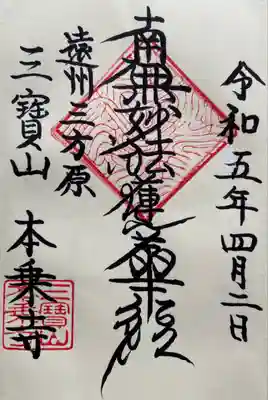 令和五年四月二日
南無妙法蓮華経
遠州三方原
三寳山 本乗寺